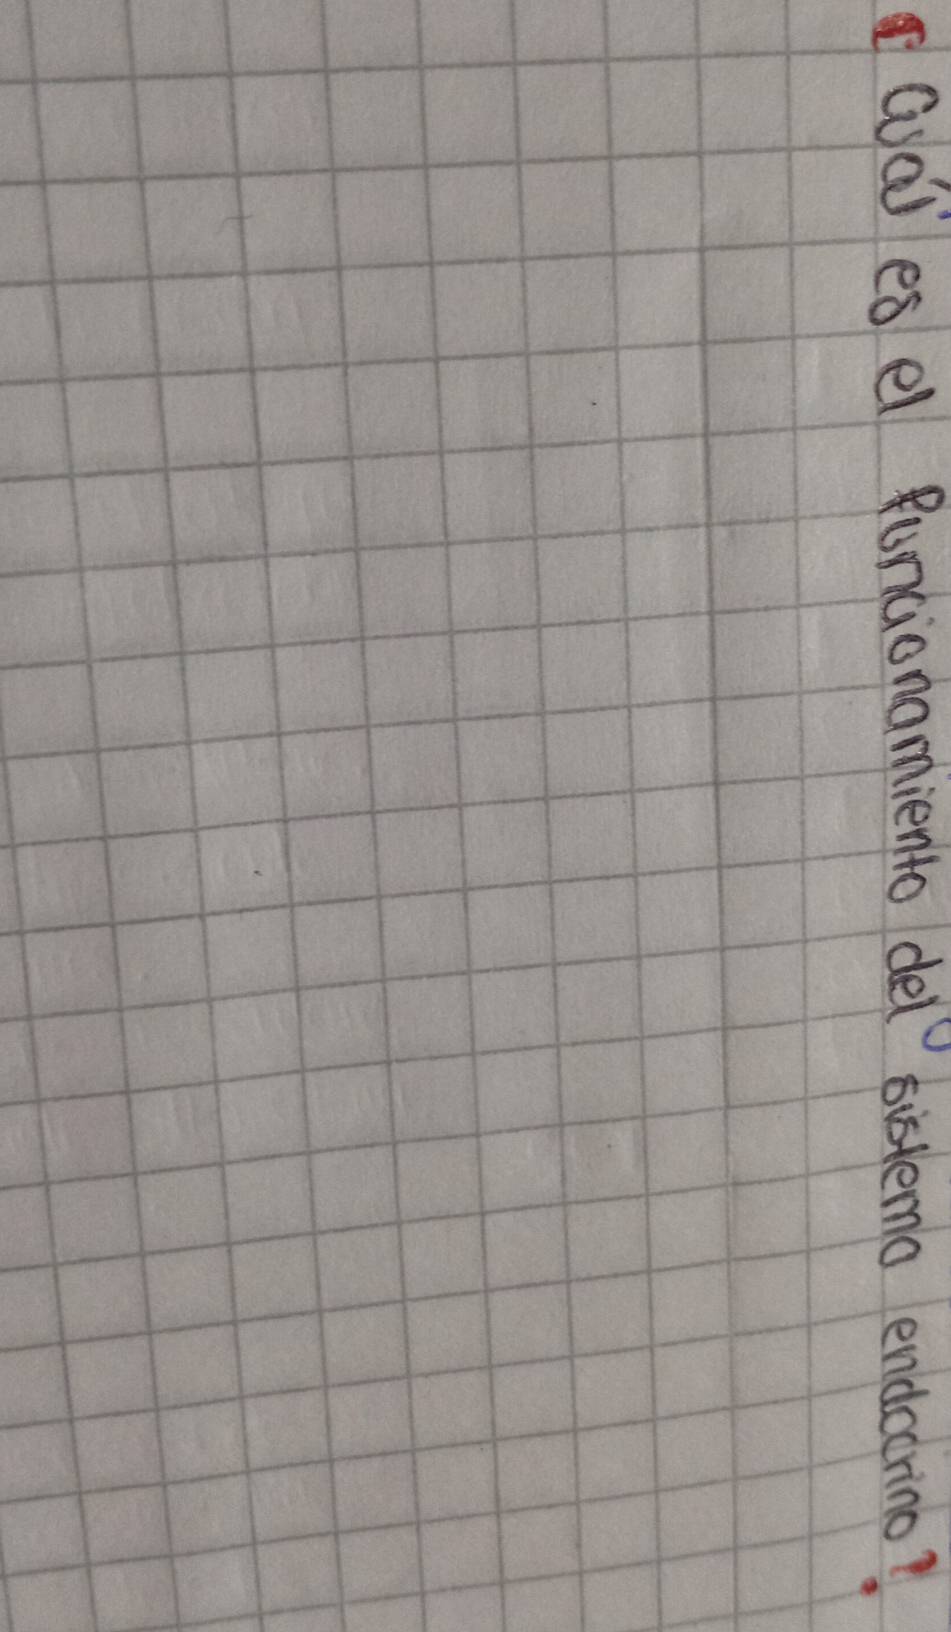 ¿Cuál es el funcionamiento del sistema endocrino?